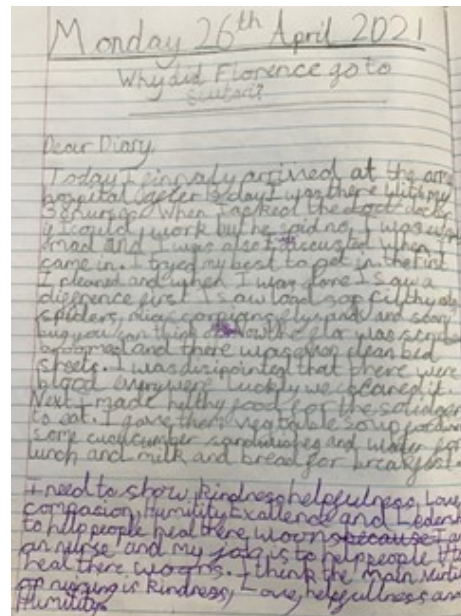 Monday 26th April 2021
Why did Florence go to
Scutari?
Dear Diary
Today I finnaly arrived at the army
hospital after 13 day I was there with my
38 nurses. When I asked the doctor
if I could work but he said no, I was
mad and I was also when I
came in. I tryed my best to get in. the first
I cleaned and when I was done I saw a
difference first I saw loads of filthy
spiders, mice, scorpions, flys and and
bug you can think of Now the was
and there was clean bed
sheets. I was disipointed that there were
blood everywere luckly we cleaned it.
Next I made helthy food for the
to eat. I gave them vegtable soup
some cucucumber sandwiches and water for
lunch and milk and bread for breakfast.
I need to show kindness helpfulness, Love,
compasion, Humility Exallence and
to help people heal there because I
an nurse and my job is to help people
heal there I think the main
on nursing is kindness, Love, helpfullness and
Humility.